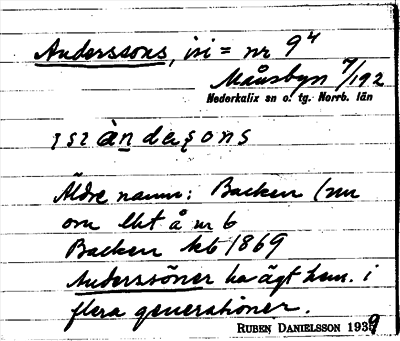 Anderssons, isi = nr 9⁴
Månsbyn 7/192
Nederkalix sn o. tg. Norrb. län
àndeşons
Äldre namn: Backen (nu
om ebt å nr 6
Backen kb 1869
Anderssöner ha ägt hem. i
flera generationer.
RUBEN DANIELSSON 1939